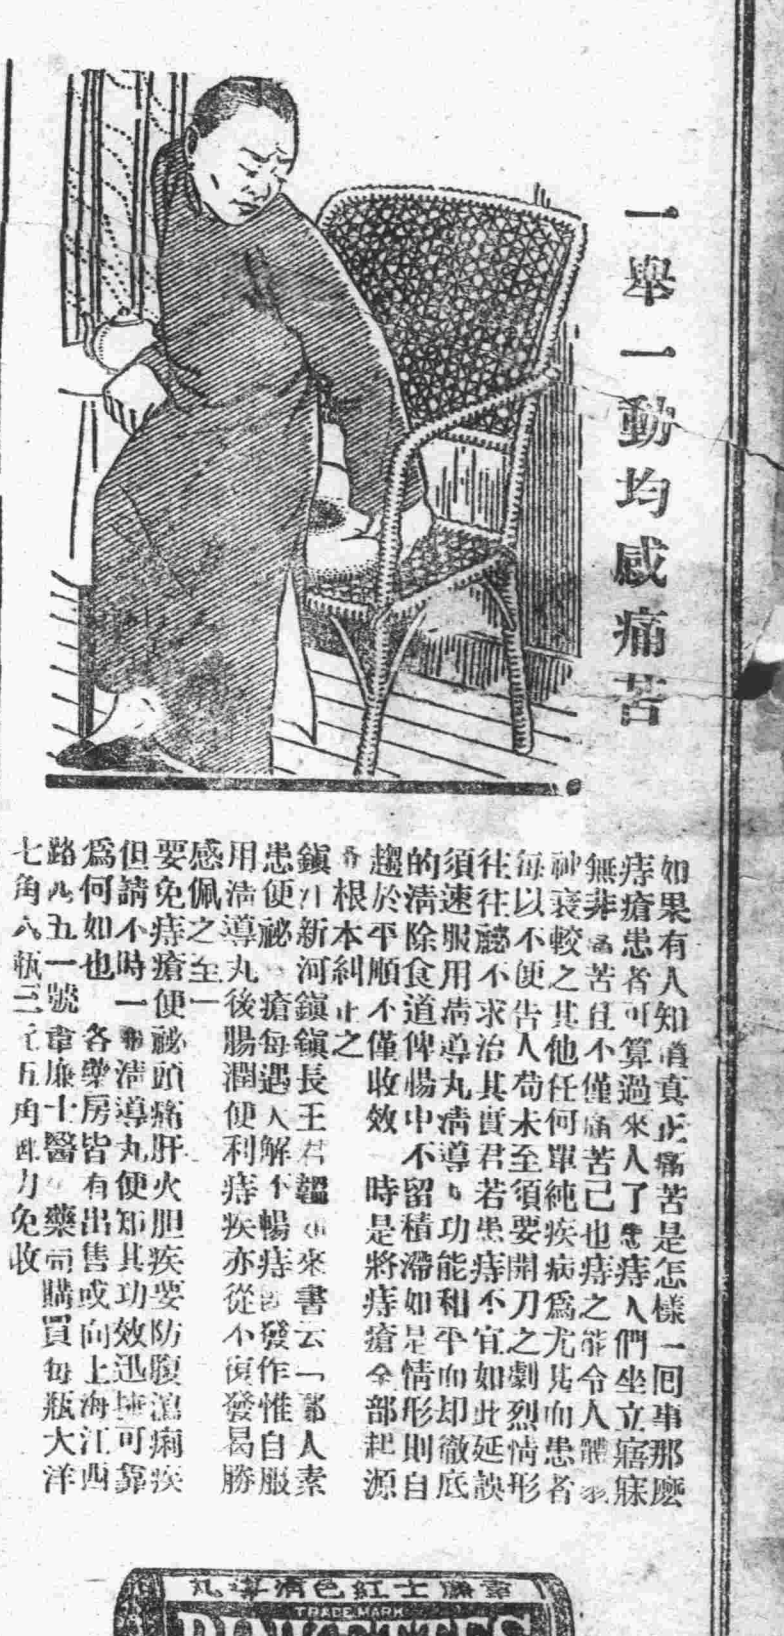 一舉一動均感痛苦
如果有人知道真正痛苦是怎樣一囘事那麽
痔瘡患者可算過來人了患痔人們坐立寤寐
無非痛苦且不僅痛苦已也痔之能令人體弱
神衰較之其他任何單純疾病爲尤甚而患者
每以不便告人苟未至須要開刀之劇烈情形
往往秘不求治其實君若患痔不宜如此延誤
須速服用淸導丸淸導丸功能和平而却徹底
的淸除食道俾腸中不留積滯如是情形則自
趨於平順不僅收效一時是將痔瘡全部起源
根本糾正之
鎭江新河鎭鎭長王君來書云「鄙人素
患便祕痔瘡每遇大解不暢痔卽發作惟自服
用淸導丸後腸潤便利痔疾亦從不復發曷勝
感佩之至」
要免痔瘡便祕頭痛肝火胆疾要防腹瀉痢疾
但請不時一服淸導丸便知其功效迅捷可靠
爲何如也 各藥房皆有出售或向上海江西
路八五一號韋廉士醫生藥局購買每瓶大洋
七角六瓶三元五角郵力免收
韋廉士紅色淸導丸
TRADE MARK
PINKETTES